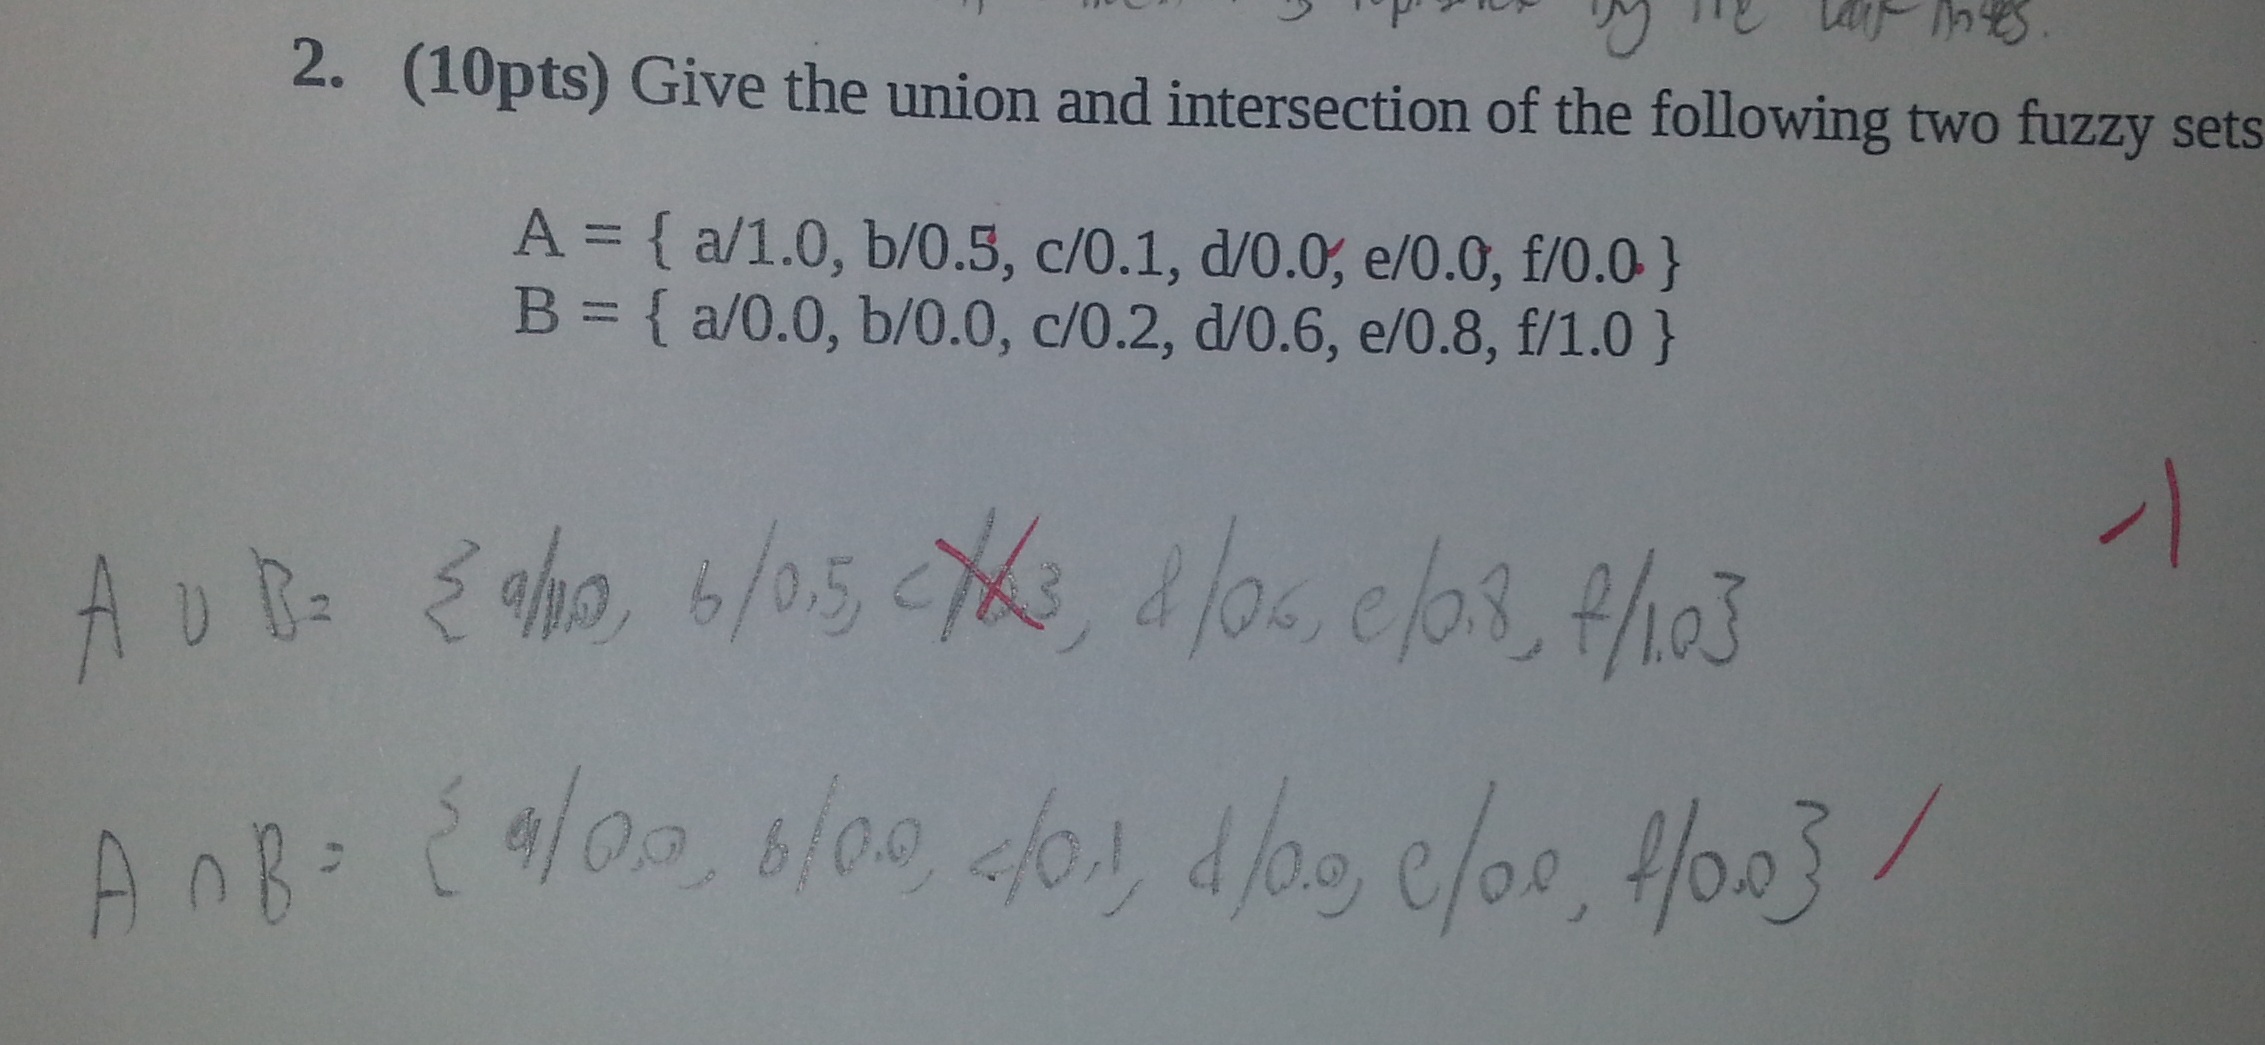 by the leaf nodes.
2. (10pts) Give the union and intersection of the following two fuzzy sets
A = { a/1.0, b/0.5, c/0.1, d/0.0, e/0.0, f/0.0 }
B = { a/0.0, b/0.0, c/0.2, d/0.6, e/0.8, f/1.0 }
-1
A ∪ B = { a/1.0, b/0.5, c/0.3, d/0.6, e/0.8, f/1.0}
A ∩ B = { a/0.0, b/0.0, c/0.1, d/0.0, e/0.0, f/0.0}